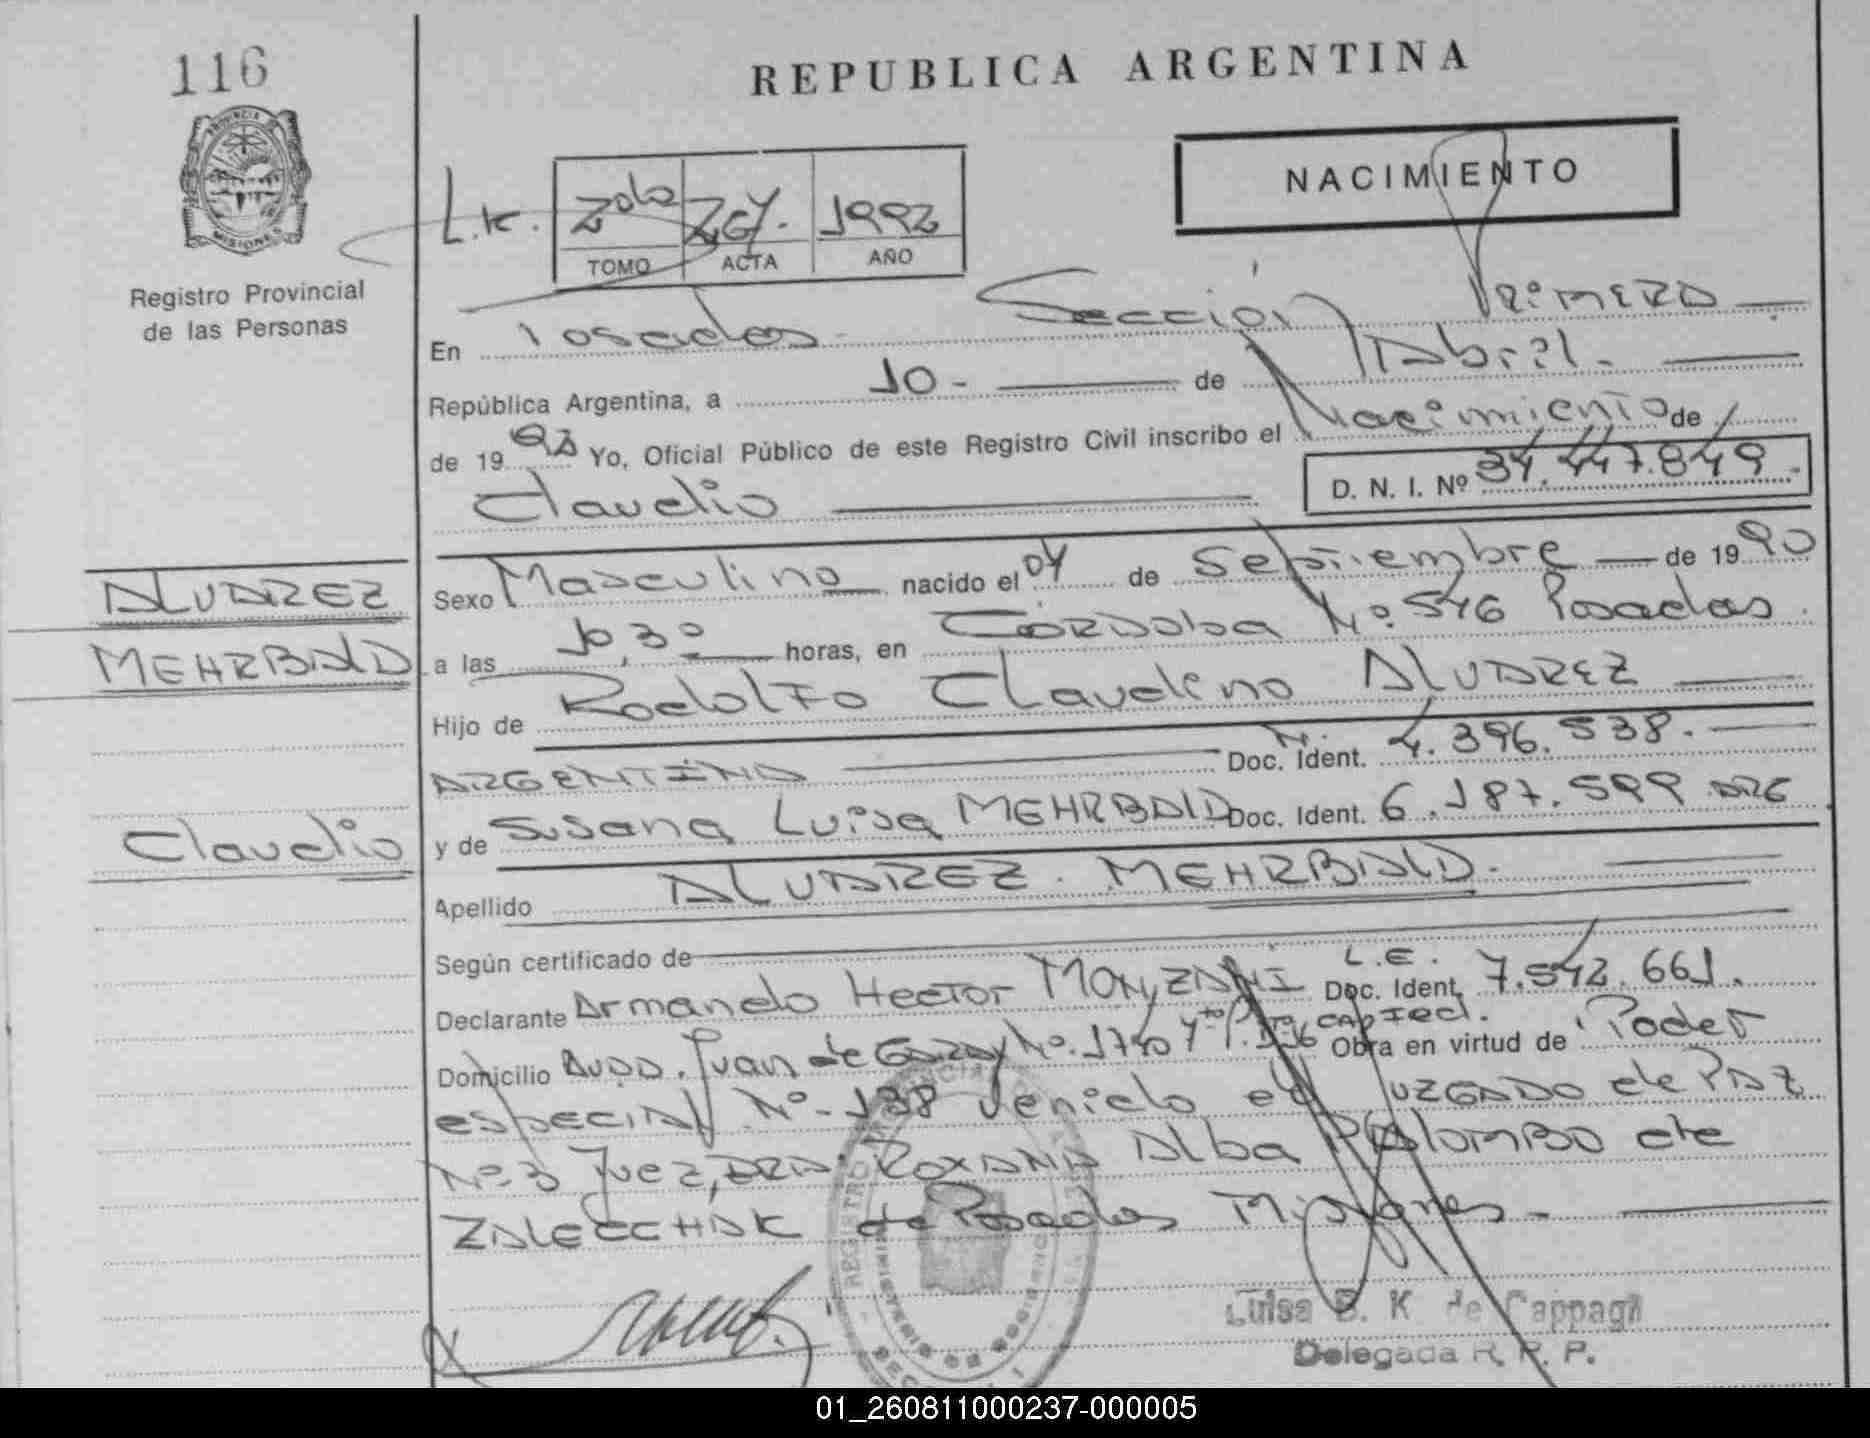 116
REPUBLICA ARGENTINA
PROVINCIA DE
MISIONES
Registro Provincial
de las Personas
NACIMIENTO
L.K. 2do 1992
TOMO ACTA AÑO
En Posadas Sección Primera
República Argentina, a 10 - de Abril.
de 19 92 Yo, Oficial Público de este Registro Civil inscribo el Nacimiento de
Claudio
D. N. I. Nº 34.447.849.-
ALVAREZ
MEHRBALD
Claudio
Sexo Masculino nacido el 04 de Septiembre de 19 90
a las 10,30 horas, en Córdoba Nº 546 Posadas.
Hijo de Rodolfo Claudino ALVAREZ
ARGENTINA Doc. Ident. 4.396.538.
y de Susana Luisa MEHRBALD Doc. Ident. 6.187.599 ARG
Apellido ALVAREZ - MEHRBALD.
Según certificado de
Declarante Armando Hector MONZANI L.E. Doc. Ident. 7.542.661.
Domicilio Avda. Juan de Garay Nº. 1740 4to P. Cap Fed. Obra en virtud de Poder
especial Nº- 138 venido el JUZGADO de PAZ
Nº-3 Juez, DRA. ROXANA Alba PALOMBO de
ZALECCHAK de Posadas Misiones -
Luisa B. K de Cappagli
Delegada R. P. P.
01_260811000237-000005